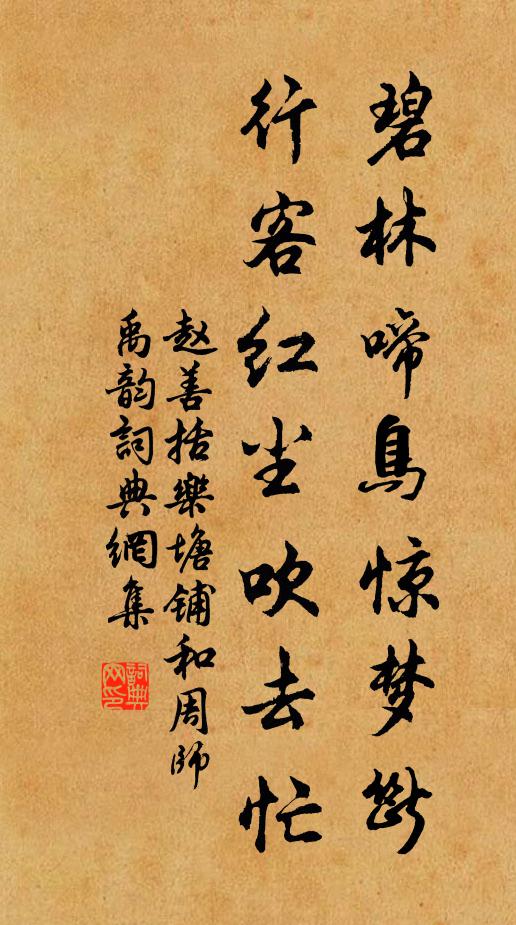 碧林啼鳥惊梦斷
行客红尘吹去忙
赵善括樂塘铺和周師
禹韵詞典網集
詞典网印